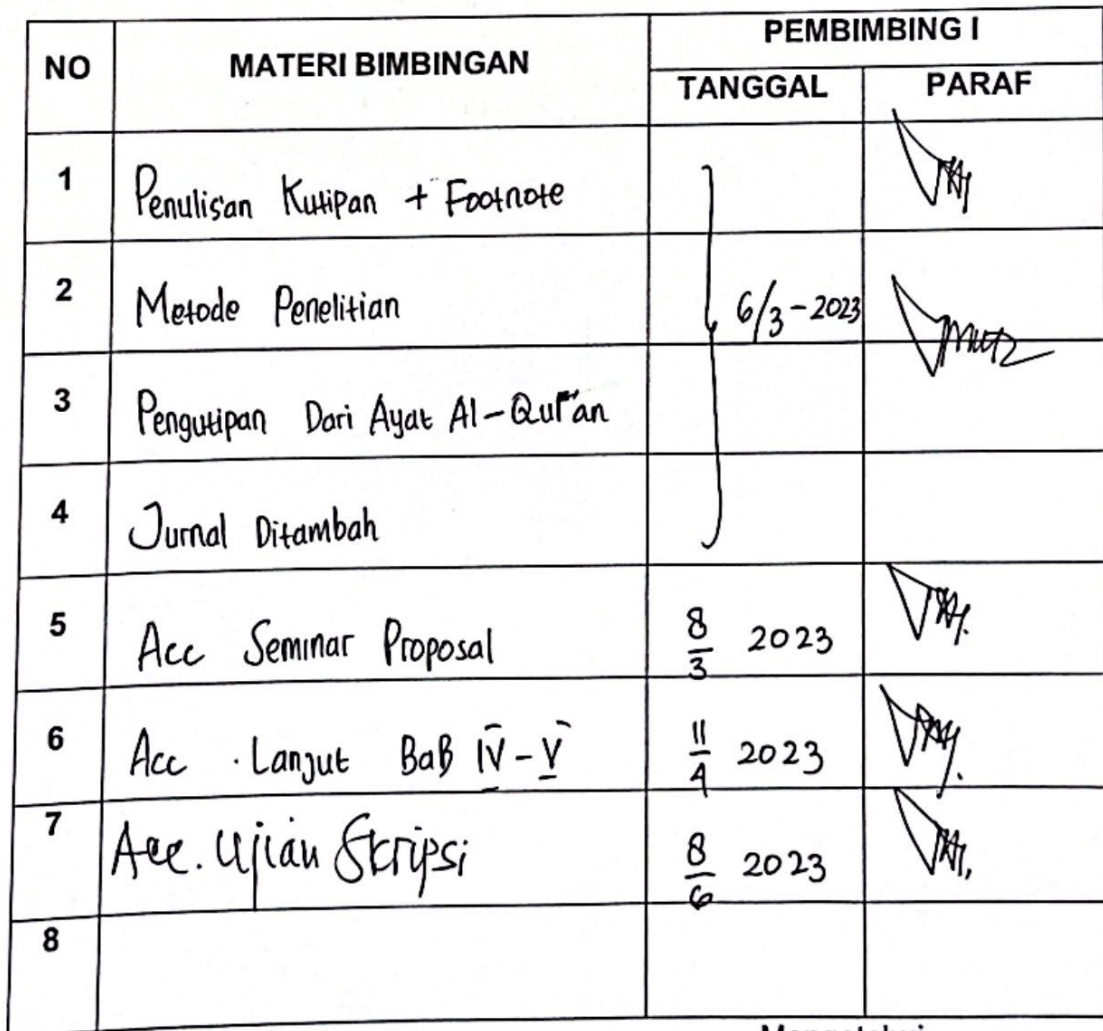 NO MATERI BIMBINGAN PEMBIMBING I
TANGGAL PARAF
1 Penulisan Kutipan + Footnote
2 Metode Penelitian 6/3-2023
3 Pengutipan Dari Ayat Al-Qur'an
4 Jurnal Ditambah
5 Acc Seminar Proposal 8/3 2023
6 Acc . Lanjut BaB IV - V 11/4 2023
7 Acc. Ujian Skripsi 8/6 2023
8